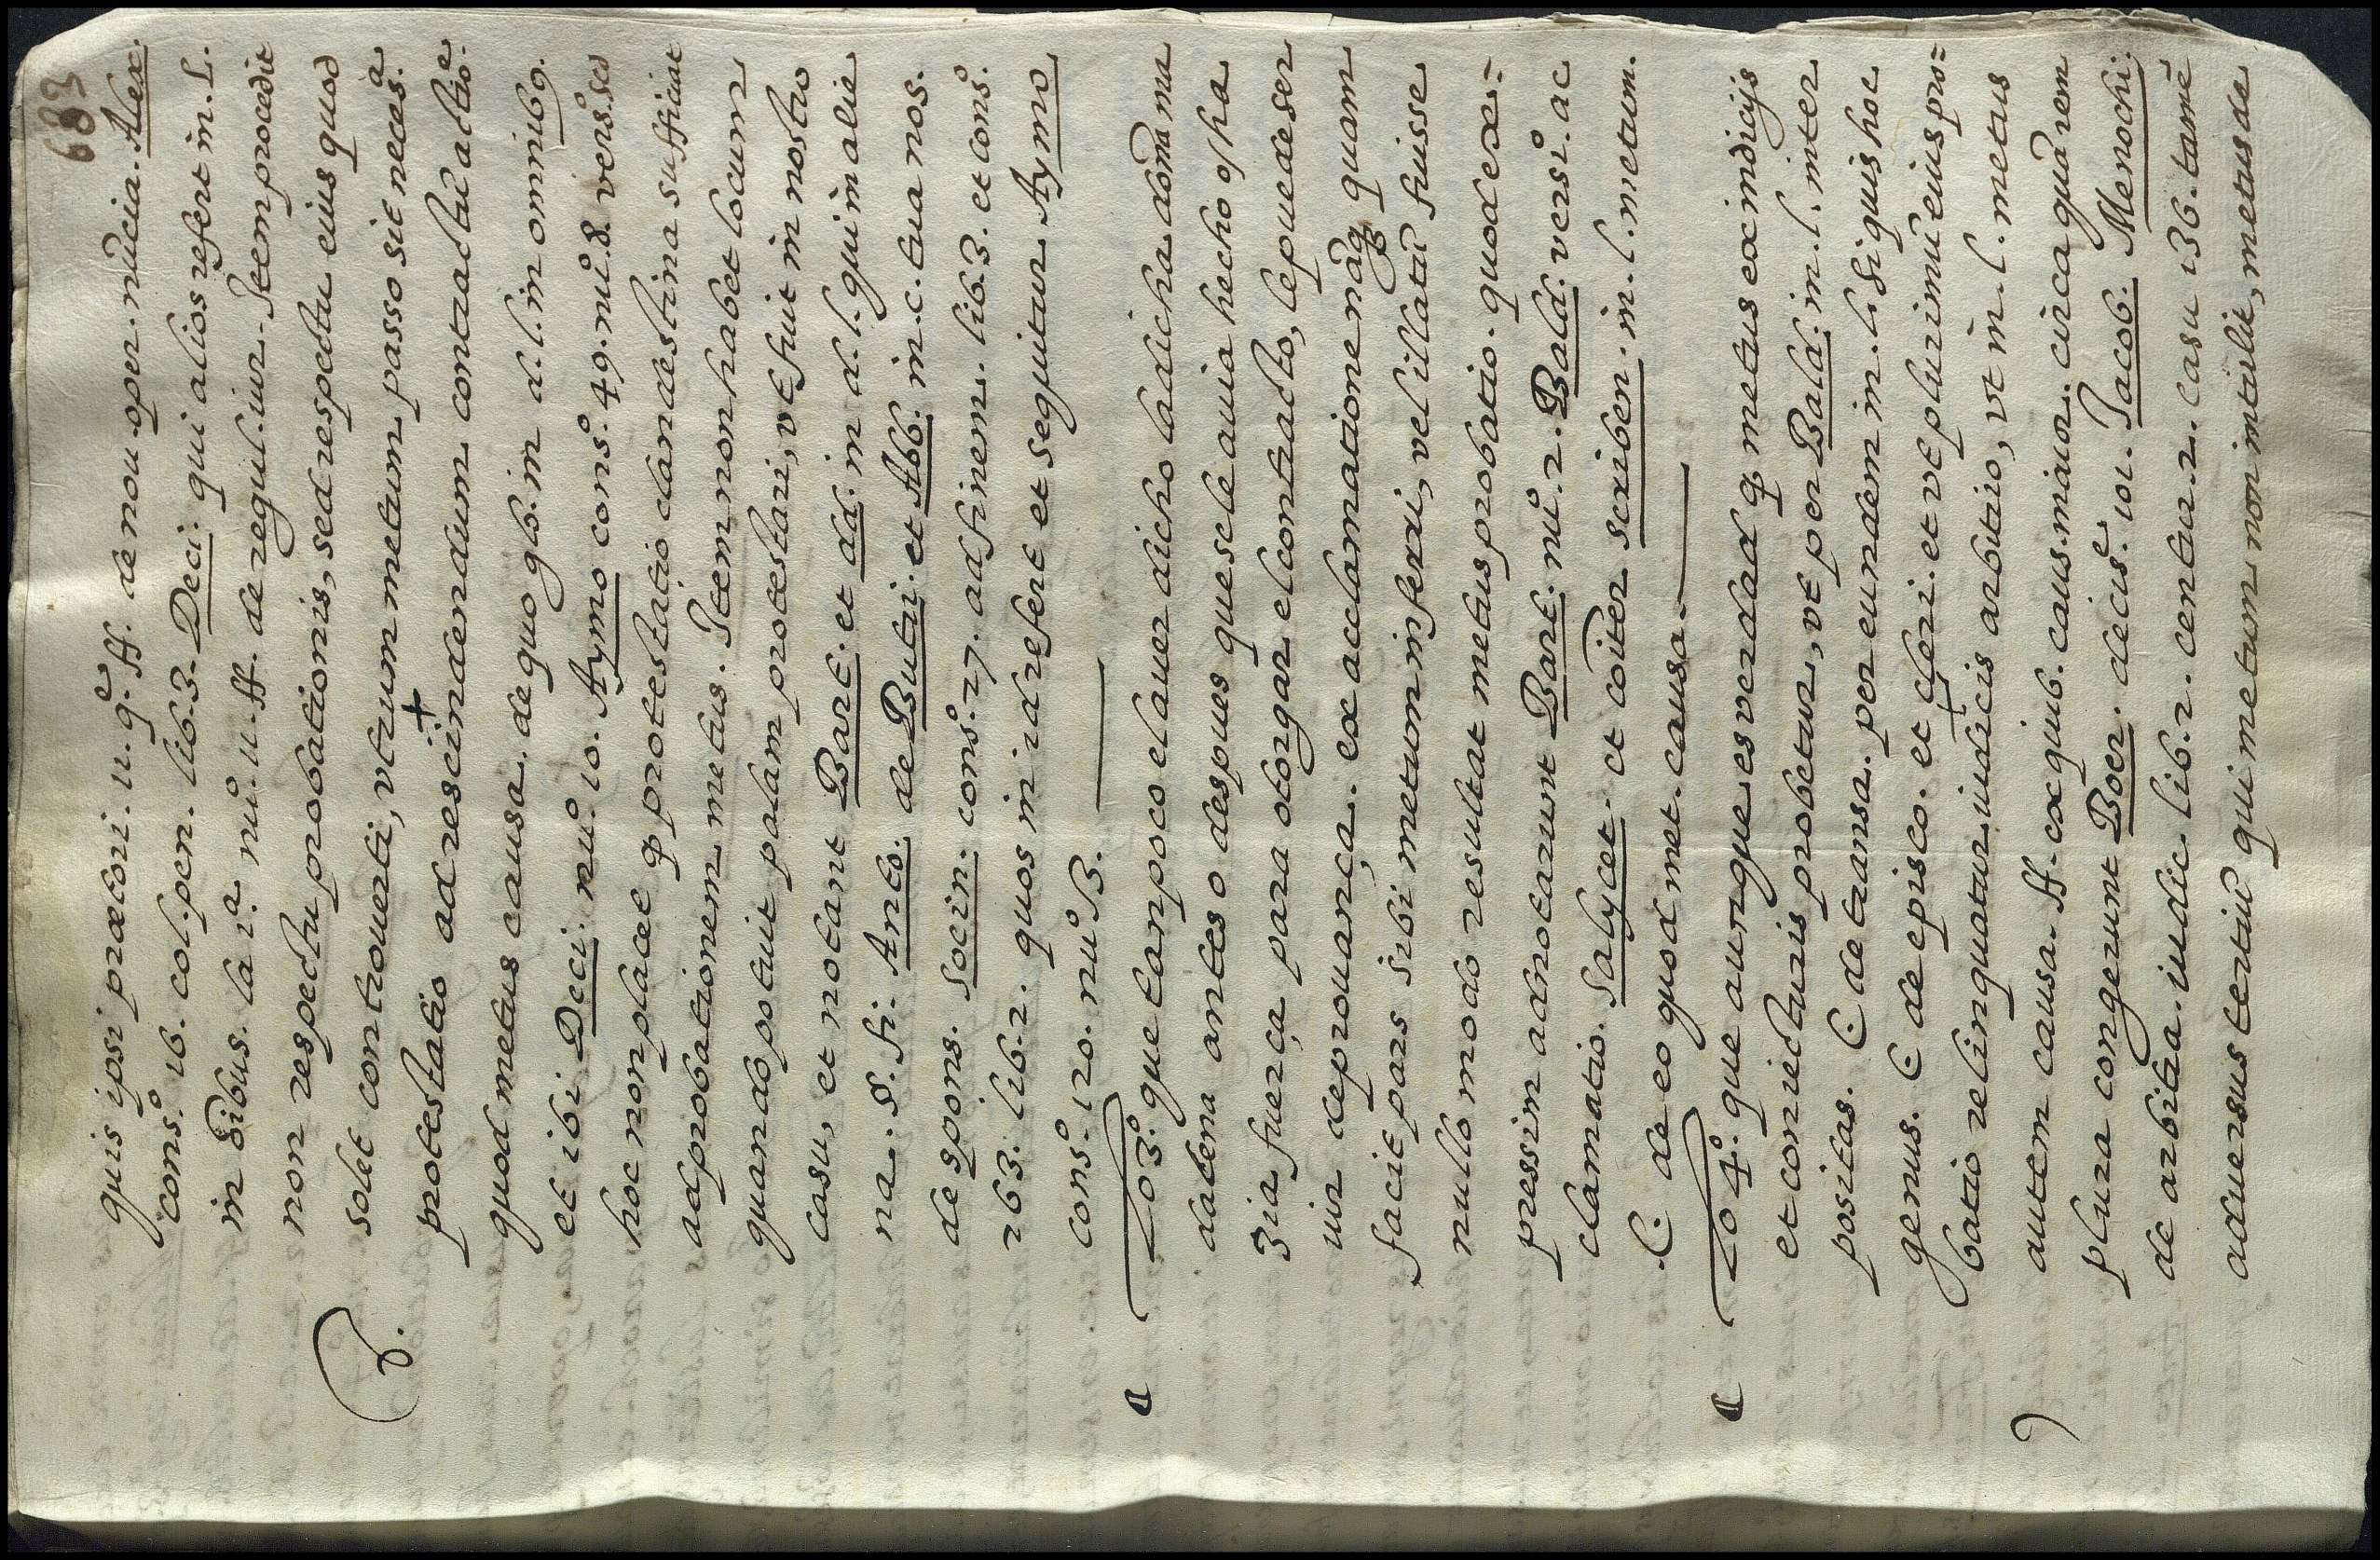 683
quis ipsi prætori. n. q̃. ff. de nou. oper. nũcia. Alex.
consº. 16. col. pen. lib. 3. Deci. qui alios refert in. L.
in oĩbus. la 2ª. nuº. 11. ff. de regul. iur. Item procedit
non respectu probationis, sed respectu eius quod
solet controuerti, vtrum metum passo sit necesª.
protestatio + ad rescindendum contractũ altioẽ.
quod metus causa. de quo glos. in d. l. in omnib9.
et ibi Deci. nuº. 10. Aymo consº. 49. nuº. 8. versº. sed
hoc non placet q̃ protestatio clandestina sufficiat
ad probationem metus. Item non habet locum
quando potuit palam protestari, vt fuit in nostro
casu, et notant Bart. et dd. in d. l. qui in alie
na. §. fi. Anto. de Butri. et Abb. in. c. tua nos.
de spons. Socin. consº. 27. ad finem. lib. 3. et consº.
263. lib. 2. quos in id refert et sequitur Aymo
consº. 120. nuº 13.
Lo 3º. que tampoco el auer dicho la dicha doña ma
dalena antes o despues que se le auia hecho o ha
zia fuerça para otorgar el contracto, le puede ser
uir de prouança. ex acclamatione nãq3 quam
facit pars sibi metum inferri, vel illatũ fuisse
nullo modo resultat metus probatio. quod ex=
pressim adnotarunt Bart. nuº. 2. Bald. versi. ac
clamatio. Salycet. et cõiter scriben. in. l. metum.
C. de eo quod met. causa.
Lo 4º. que aunque es verdad q̃ metus ex indicijs
et coniecturis probetur, vt per Bald. in. l. inter
positas. C. de transa. per eundem in. l. si quis hoc
genus. C de episco. et cleri. et vt plurimũ eius pro=
batio relinquatur iudicis arbitrio, vt in. l. metus
autem causa. ff. ex quib. caus. maior. circa quã rem
plura congerunt Boer. decisº. 101. Jacob. Menochi.
de arbitra. iudic. lib. 2. centur. 2. casu 136. tamẽ
aduersus tertiũ qui metum non intulit, metus de